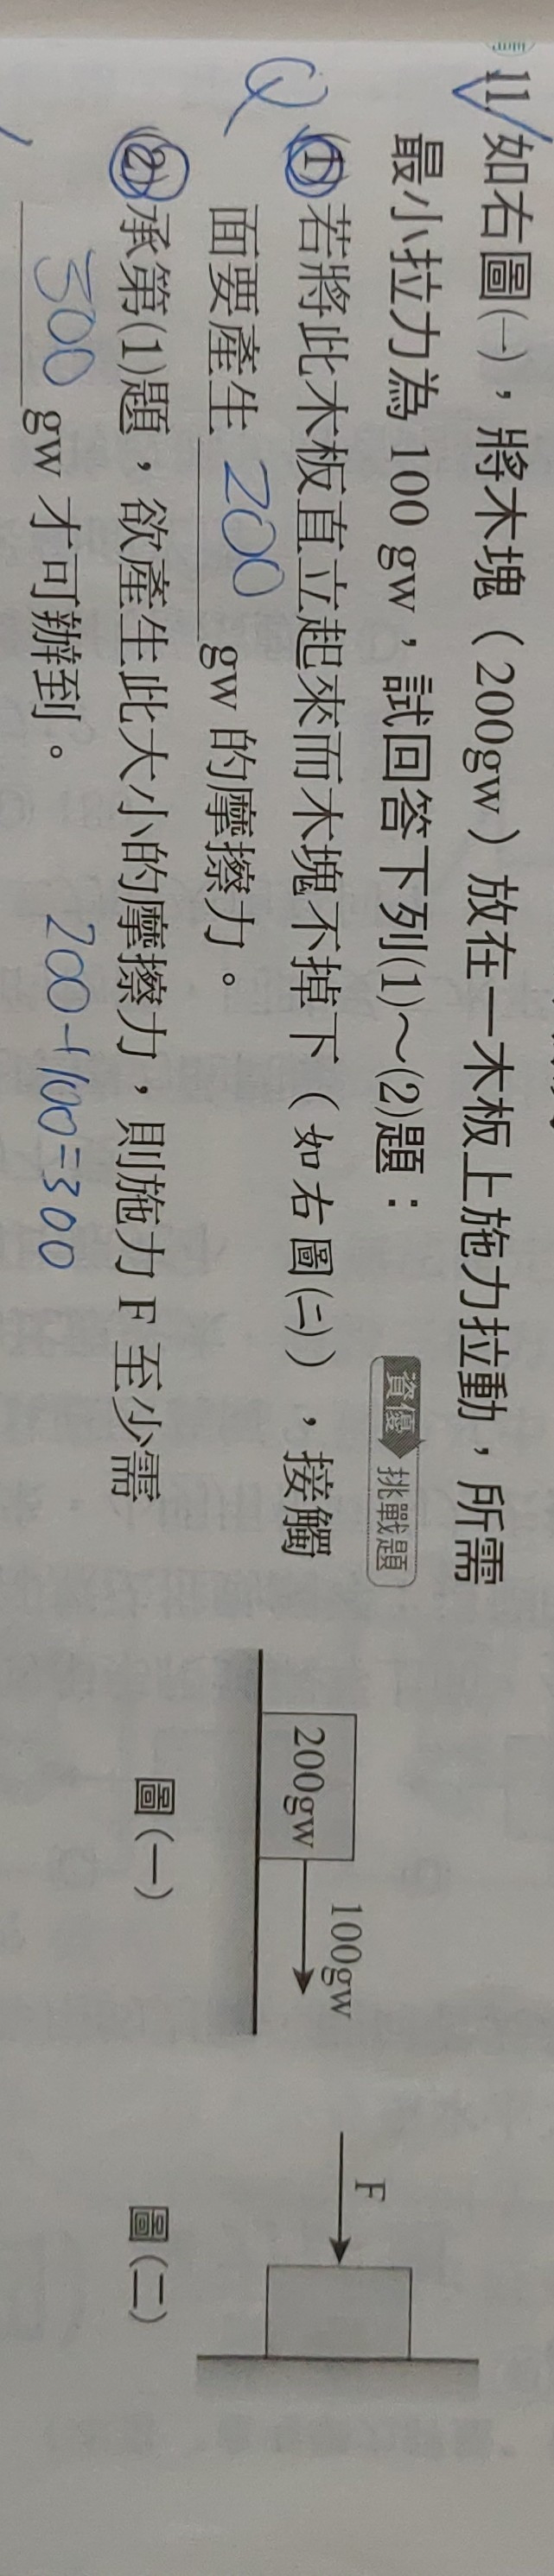 11 如右圖(一)，將木塊（200gw）放在一木板上施力拉動，所需
最小拉力為 100 gw，試回答下列(1)～(2)題：
資優 挑戰題
(1)若將此木板直立起來而木塊不掉下（如右圖(二)），接觸
面要產生 200 gw 的摩擦力。
(2)承第(1)題，欲產生此大小的摩擦力，則施力 F 至少需
300 gw 才可辦到。
200+100=300
200gw
100gw
圖(一)
F
圖(二)